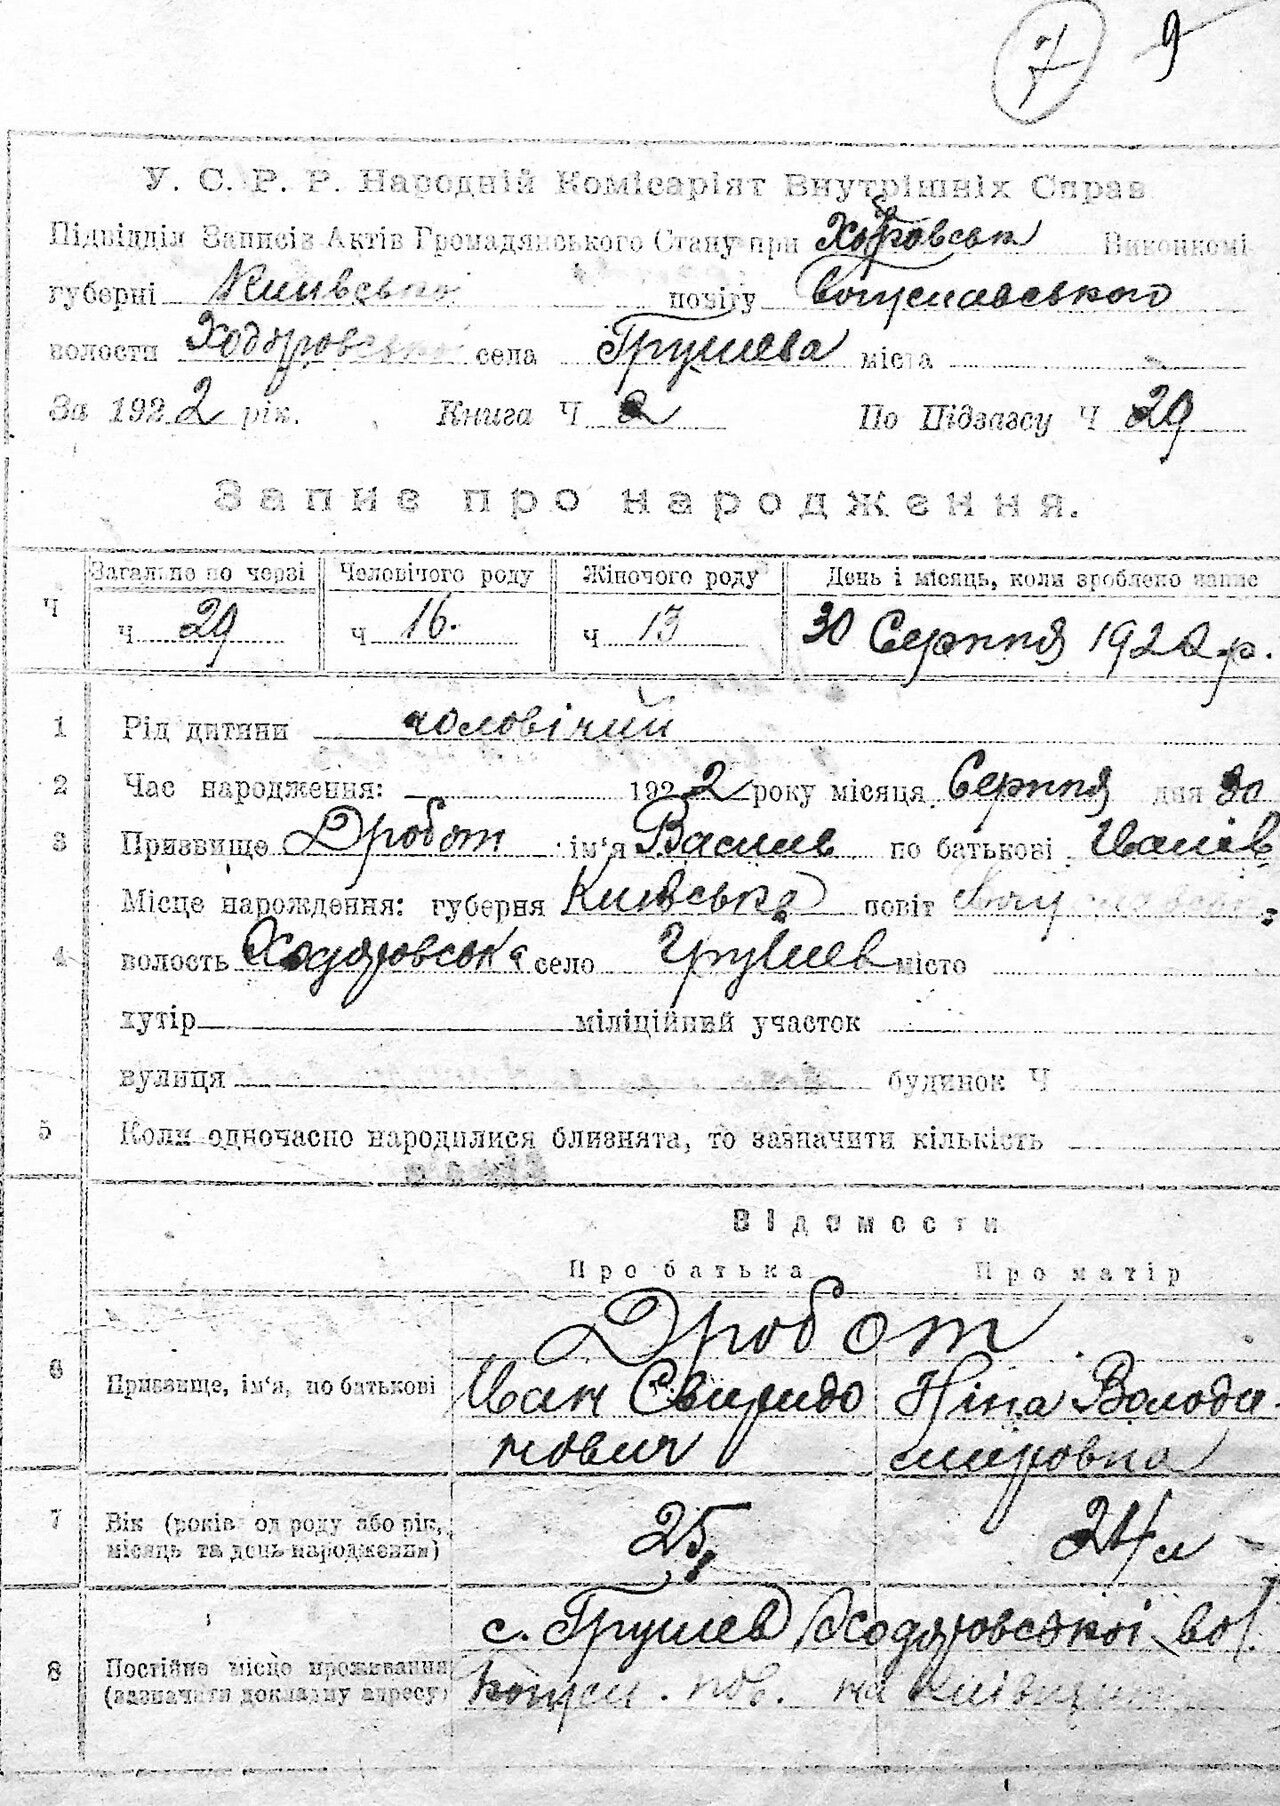 7 9
У. С. Р. Р. Народній Комісаріят Внутрішніх Справ
Підвідділ Записів Актів Громадянського Стану при Виконкомі
губерні Київсько повіту Богуславського
волости Ходорівсько села Грушева міста
За 1922 рік. Книга Ч 2 По Підзагсу Ч 29
Запис про народження.
Загально по черзі Чоловічого роду Жіночого роду День і місяць, коли зроблено запис
Ч ч 29 ч 16. ч 13 30 Серпня 1922 р.
1 Рід дитини чоловічий
2 Час народження: 1922 року місяця Серпня дня 30
3 Призвище Дробот ім'я Василь по батькові Іванів
Місце народження: губерня Київська повіт
4 волость Ходоровська село Грушев місто
хутір міліційний участок
вулиця будинок Ч
5 Коли одночасно народилися близнята, то зазначити кількість
Відомости
Про батька Про матір
Дробот
6 Призвище, ім'я, по батькові Іван Свиридо Ніна Волода-
нович мировна
7 Вік (років од роду або рік, 25 24 л
місяць та день народження)
с. Грушев Ходоровської вол.
8 Постійне місце проживання
(зазначити докладну адресу) пов. на Київщині